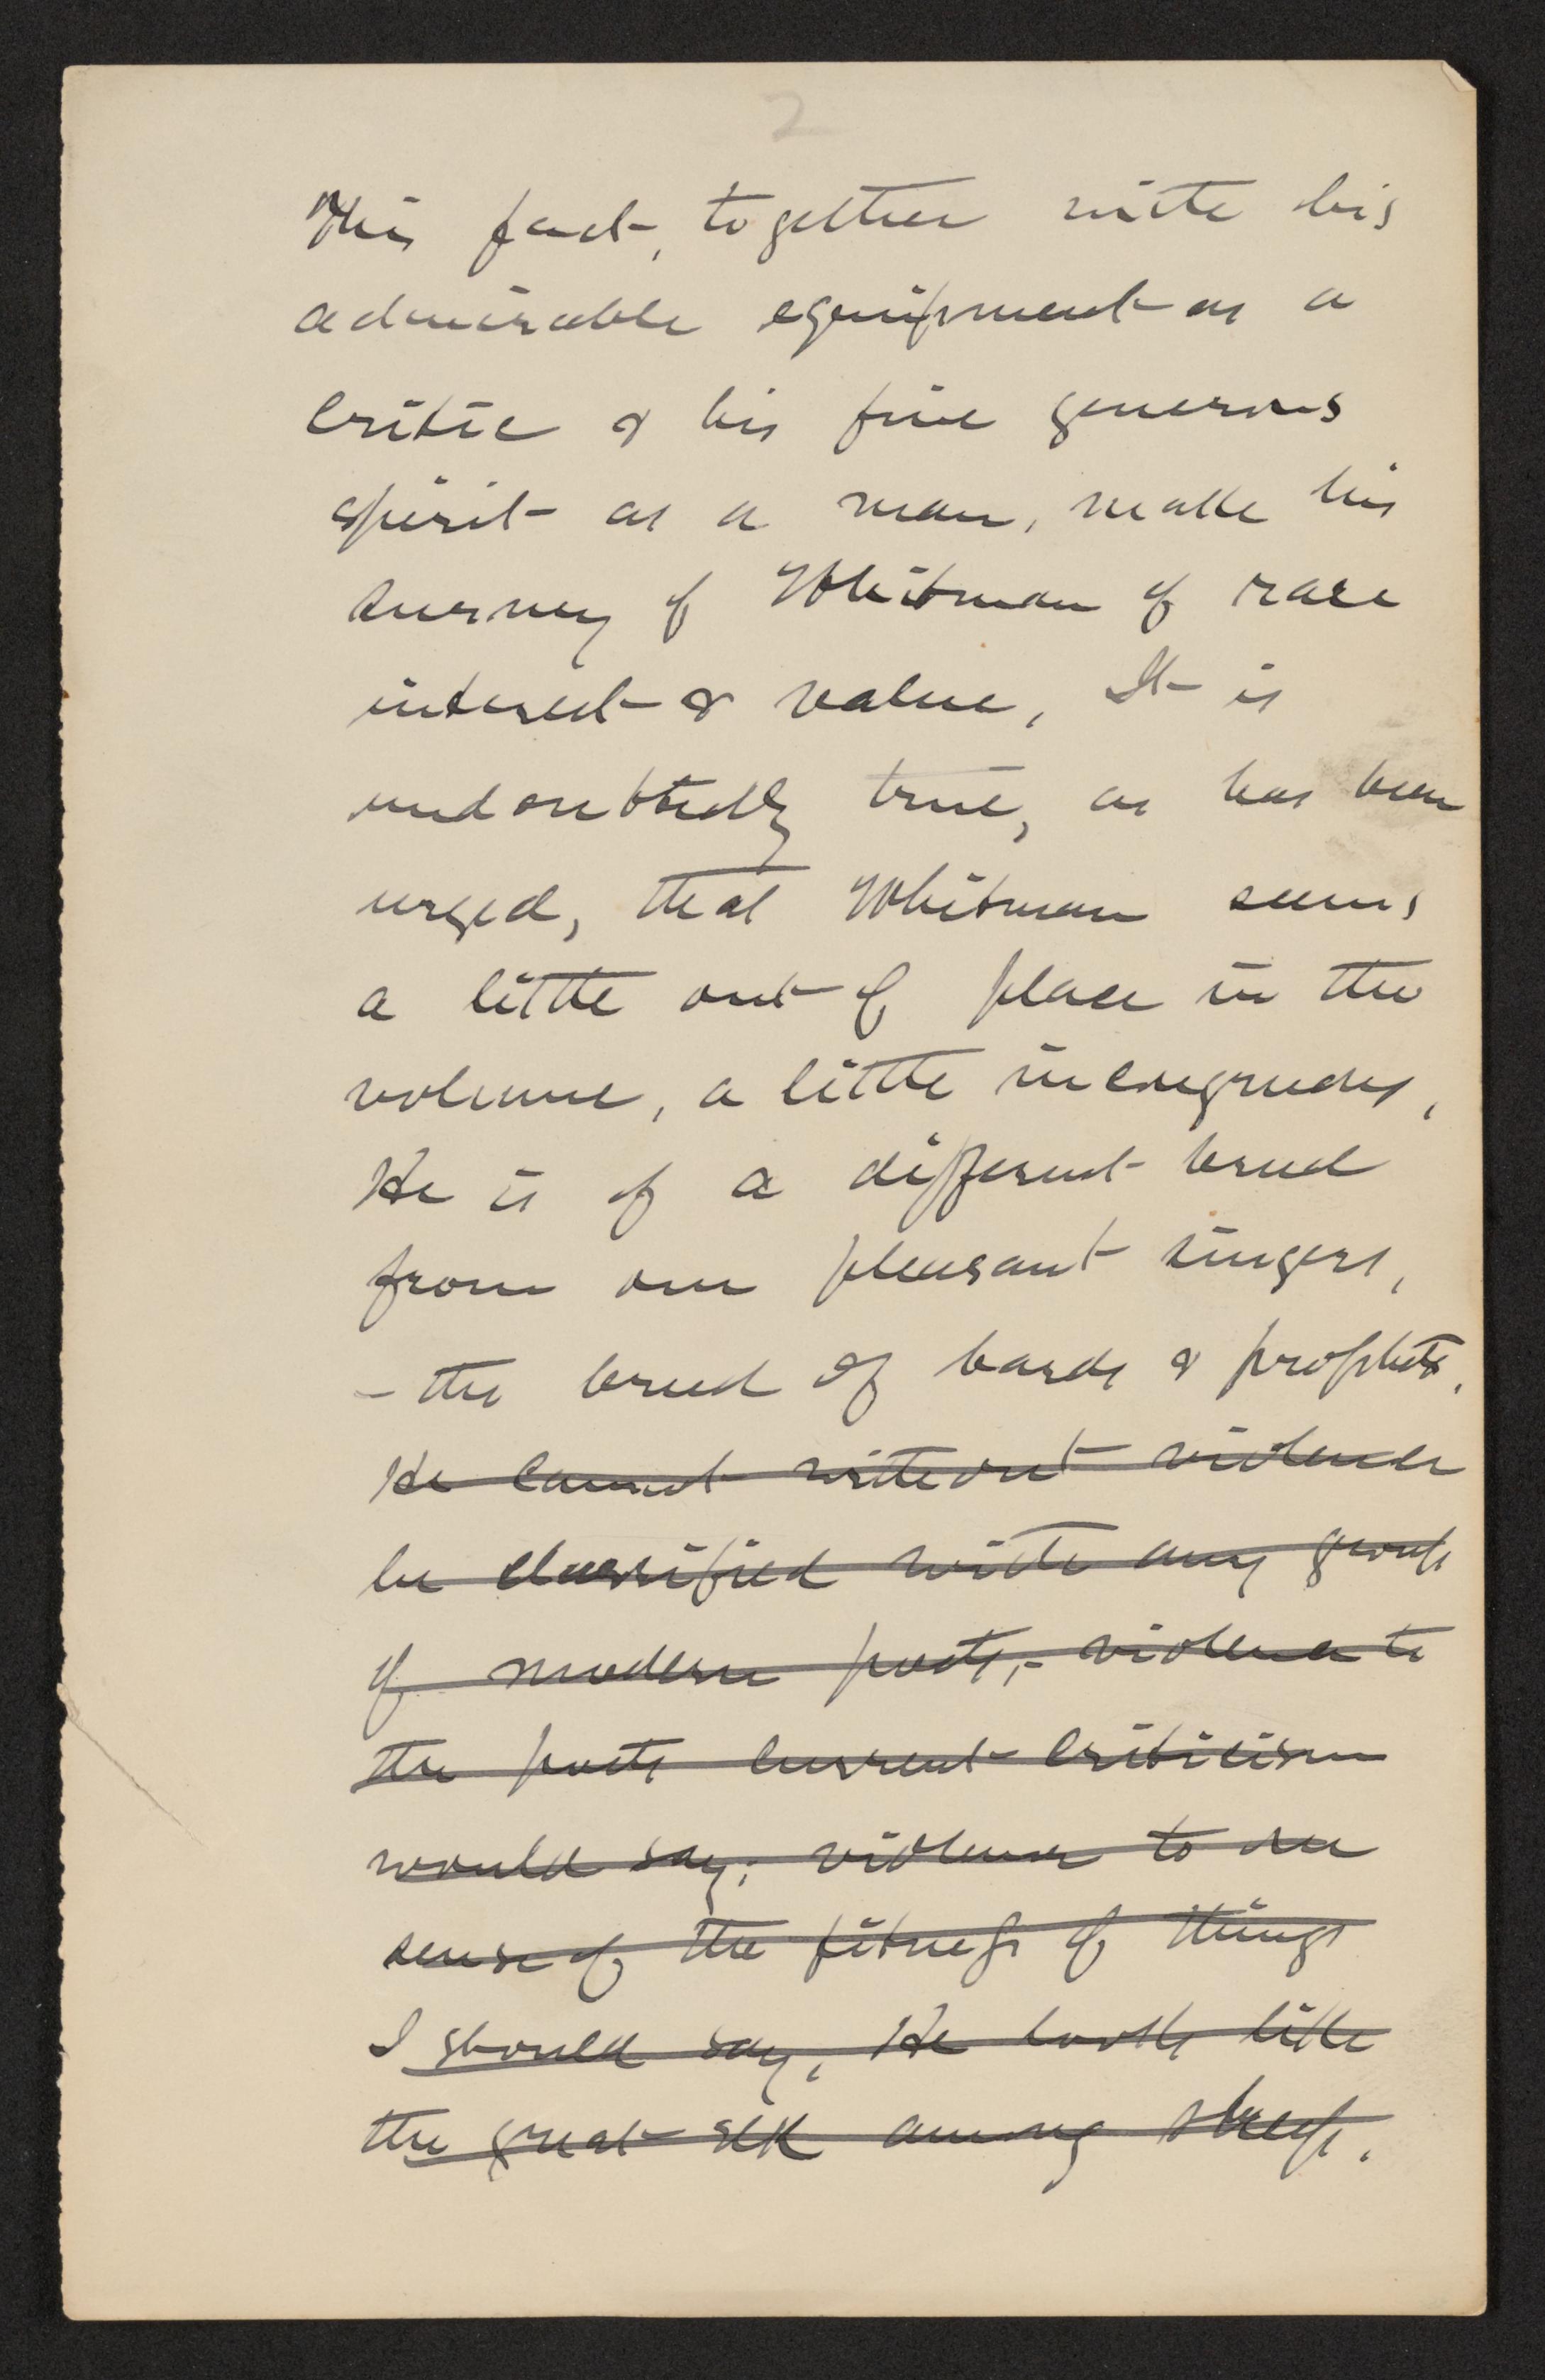 2
This fact, together with his
admirable equipment as a
critic & his fine generous
spirit as a man, make his
survey of Whitman of rare
interest & value, It is
undoubtedly true, as has been
urged, that Whitman seems
a little out of place in the
volume, a little incongruous,
He is of a different breed
from our pleasant singers,
– the breed of bards & prophets.
He cannot without violence
be classified with any group
of modern poets,– violence to
the poets current criticism
would say; violence to our
sense of the fitness of things
I should say, He looks like
the great elk among sheep.